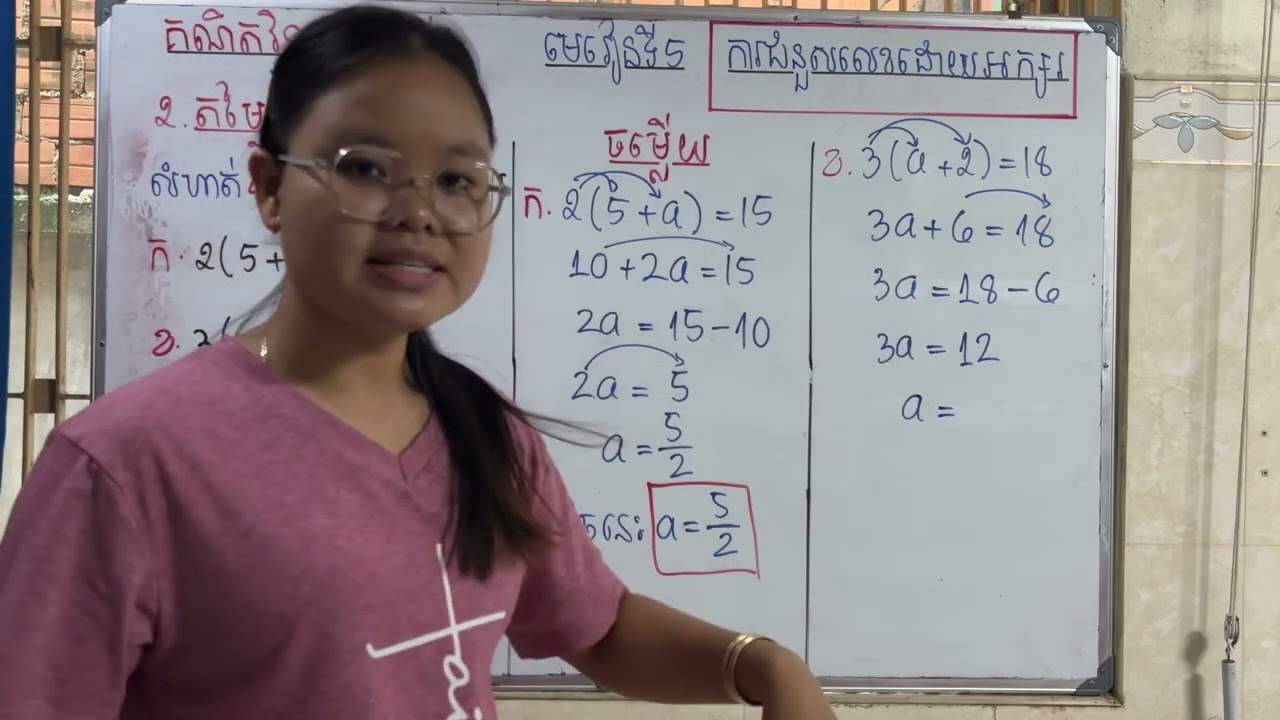 គណិតវិ
មេរៀនទី5
ការជំនួសលេខដោយអក្សរ
២. តម្លៃ
លំហាត់
ក. 2(5+
ខ. 3(
ចម្លើយ
ក. 2(5+a)=15
10+2a=15
2a = 15-10
2a = 5
a = 5/2
ចនេះ a = 5/2
ខ. 3(a+2)=18
3a+6=18
3a=18-6
3a=12
a=